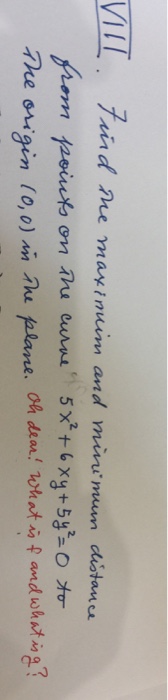 VIII. Find the maximum and minimum distance
from points on the curve 5x² + 6xy + 5y² = 0 to
The origin (0,0) in the plane. Oh dear! What is f and what is g?